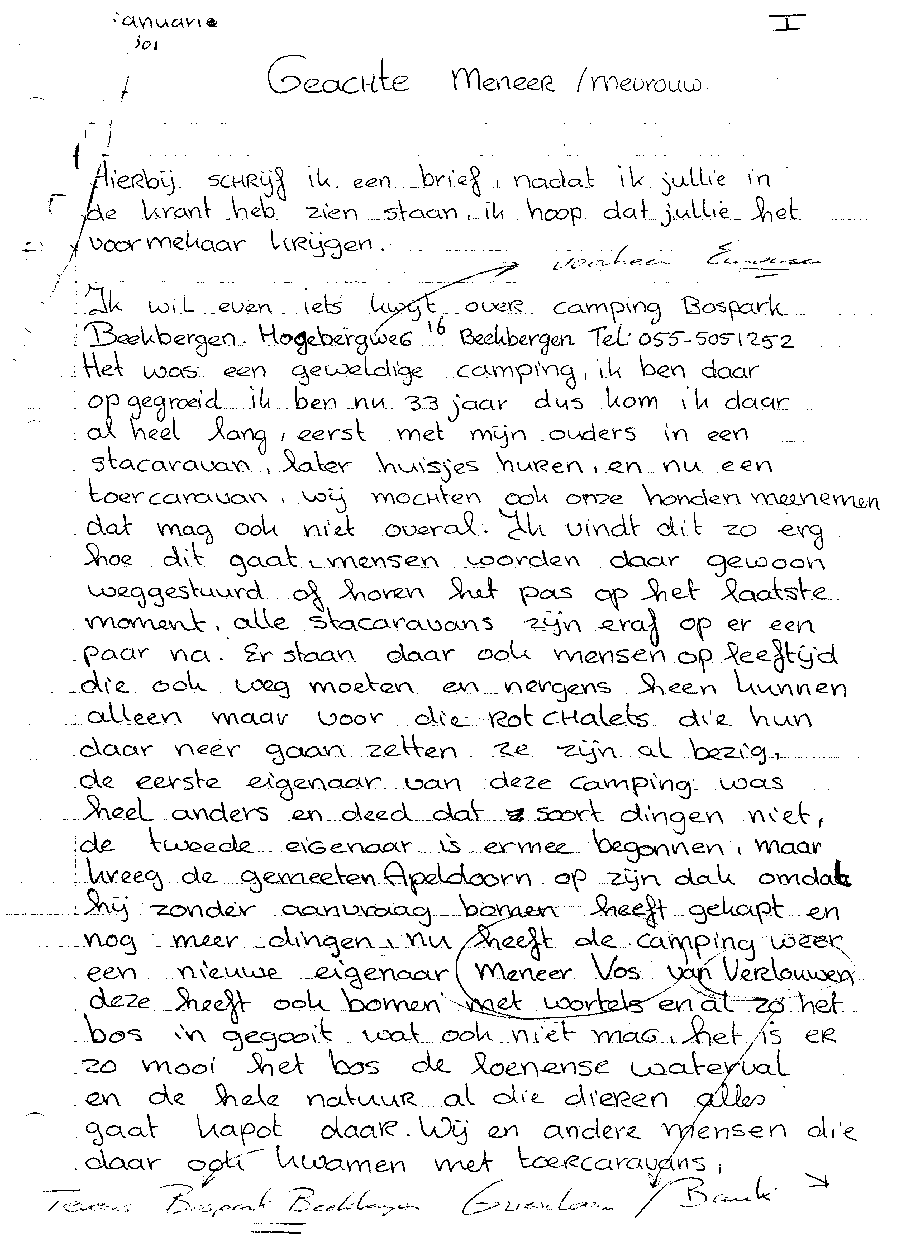 januarie
I
Geachte Meneer / mevrouw
Hierbij schrijf ik een brief, nadat ik jullie in
de krant heb zien staan, ik hoop dat jullie het
voormekaar krijgen.
voorheen
Ik wil even iets kwijt over camping Bospark
Beekbergen. Hogebergweg 16 Beekbergen Tel: 055-5051252
Het was een geweldige camping, ik ben daar
opgegroeid ik ben nu 33 jaar dus kom ik daar
al heel lang, eerst met mijn ouders in een
stacaravan, later huisjes huren, en nu een
toercaravan, wij mochten ook onze honden meenemen
dat mag ook niet overal. Ik vindt dit zo erg
hoe dit gaat, mensen worden daar gewoon
weggestuurd of horen het pas op het laatste
moment, alle stacaravans zijn eraf op er een
paar na. Er staan daar ook mensen op leeftijd
die ook weg moeten en nergens heen kunnen
alleen maar voor die rotchalets die hun
daar neer gaan zetten ze zijn al bezig,
de eerste eigenaar van deze camping was
heel anders en deed dat soort dingen niet,
de tweede eigenaar is ermee begonnen, maar
kreeg de gemeeten Apeldoorn op zijn dak omdat
hij zonder aanvraag bomen heeft gekapt en
nog meer dingen, nu heeft de camping weer
een nieuwe eigenaar (Meneer Vos van Verlouwen
deze heeft ook bomen met wortels en al zo het
bos in gegooit wat ook niet mag, het is er
zo mooi het bos de loenense waterval
en de hele natuur al die dieren alles
gaat kapot daar. Wij en andere mensen die
daar ook kwamen met toercaravans,
Tevens Bospark Beekbergen / Bank